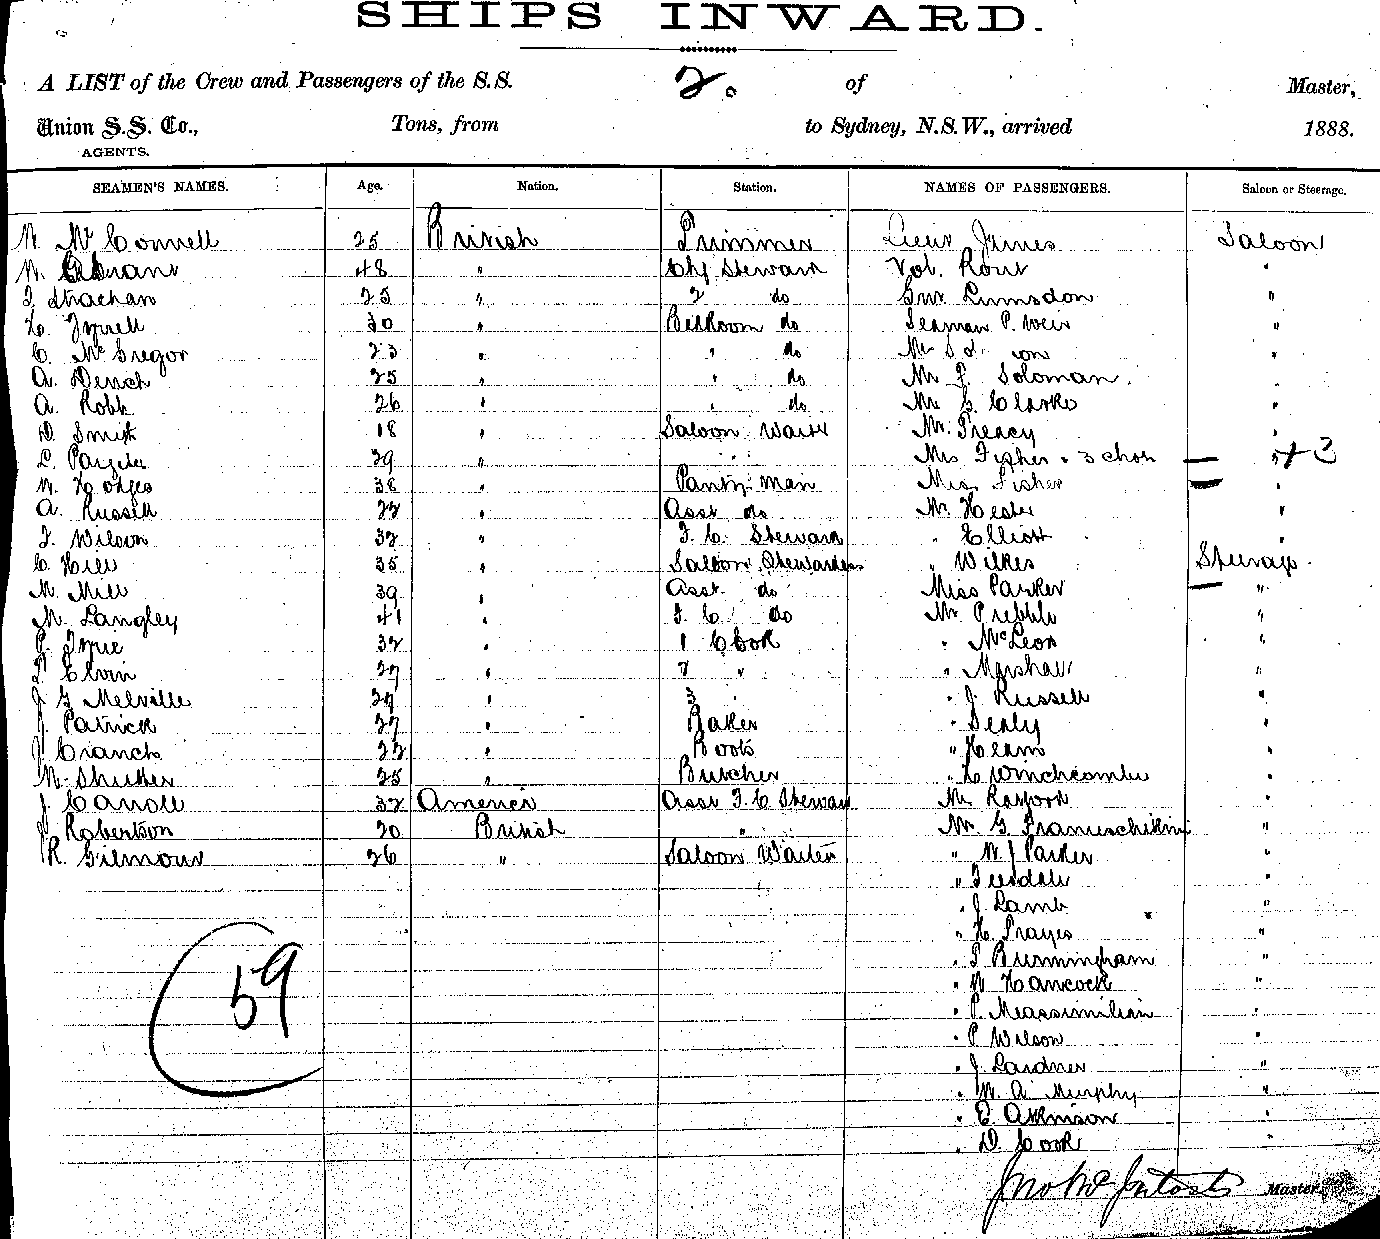 SHIPS INWARD.
A LIST of the Crew and Passengers of the S.S. 2. of Master,
Union S.S. Co., Tons, from to Sydney, N.S.W., arrived 1888.
AGENTS.
SEAMEN'S NAMES. Age. Nation. Station. NAMES OF PASSENGERS. Saloon or Steerage.
Mc Connell 25 British Trimmer Lieut James Saloon
48 " Chf Steward Vol. Rout "
Strachan 25 " 2 do Gnr Lumsdon "
Tyrrell 30 " BedRoom do Seaman P. Weir "
C. McGregor 23 " " do Mr "
A. Dench 25 " " do Mr Soloman. "
A. Robb 26 " " do Mr G Clarke "
D. Smith 18 " Saloon Waiter Mr. Treacy "
L. Pargeter 39 " " Mrs Fisher & 3 chdn " + 3
W. Hodges 38 " Pantry man Miss Fisher "
A. Russell 22 " Asst do Mr Hester "
Wilson 32 " F. C. Steward " Elliott "
C. Hill 35 " Saloon Stewardess " Wilkes Steerage
M. Mill 39 " Asst do Miss Parker "
M. Langley 41 " F. C. do Mr Pribble "
Tyrie 32 " 1 Cook " McLeod "
Elvin 27 " 2 " " Marshall "
J G Melville 27 " 3 " " J Russell "
J. Patrick 27 " Baker " Sealy "
J Cranch 22 " Book " Hearn "
25 " Butcher " H Winchcombe "
J. Carroll 32 America Asst F. C. Steward Mr "
J Robertson 20 British " Mr G "
R. Gilmour 26 " Saloon Waiter " W J Parker "
" Teesdale "
" J Lamb "
" H. "
" Burmingham "
" W Hancock "
" P. Meassimilian "
" P Wilson "
" J. Lardner "
" W. A. Murphy "
" E. Atkinson "
" D. Cook "
59
Jno McIntosh Master.